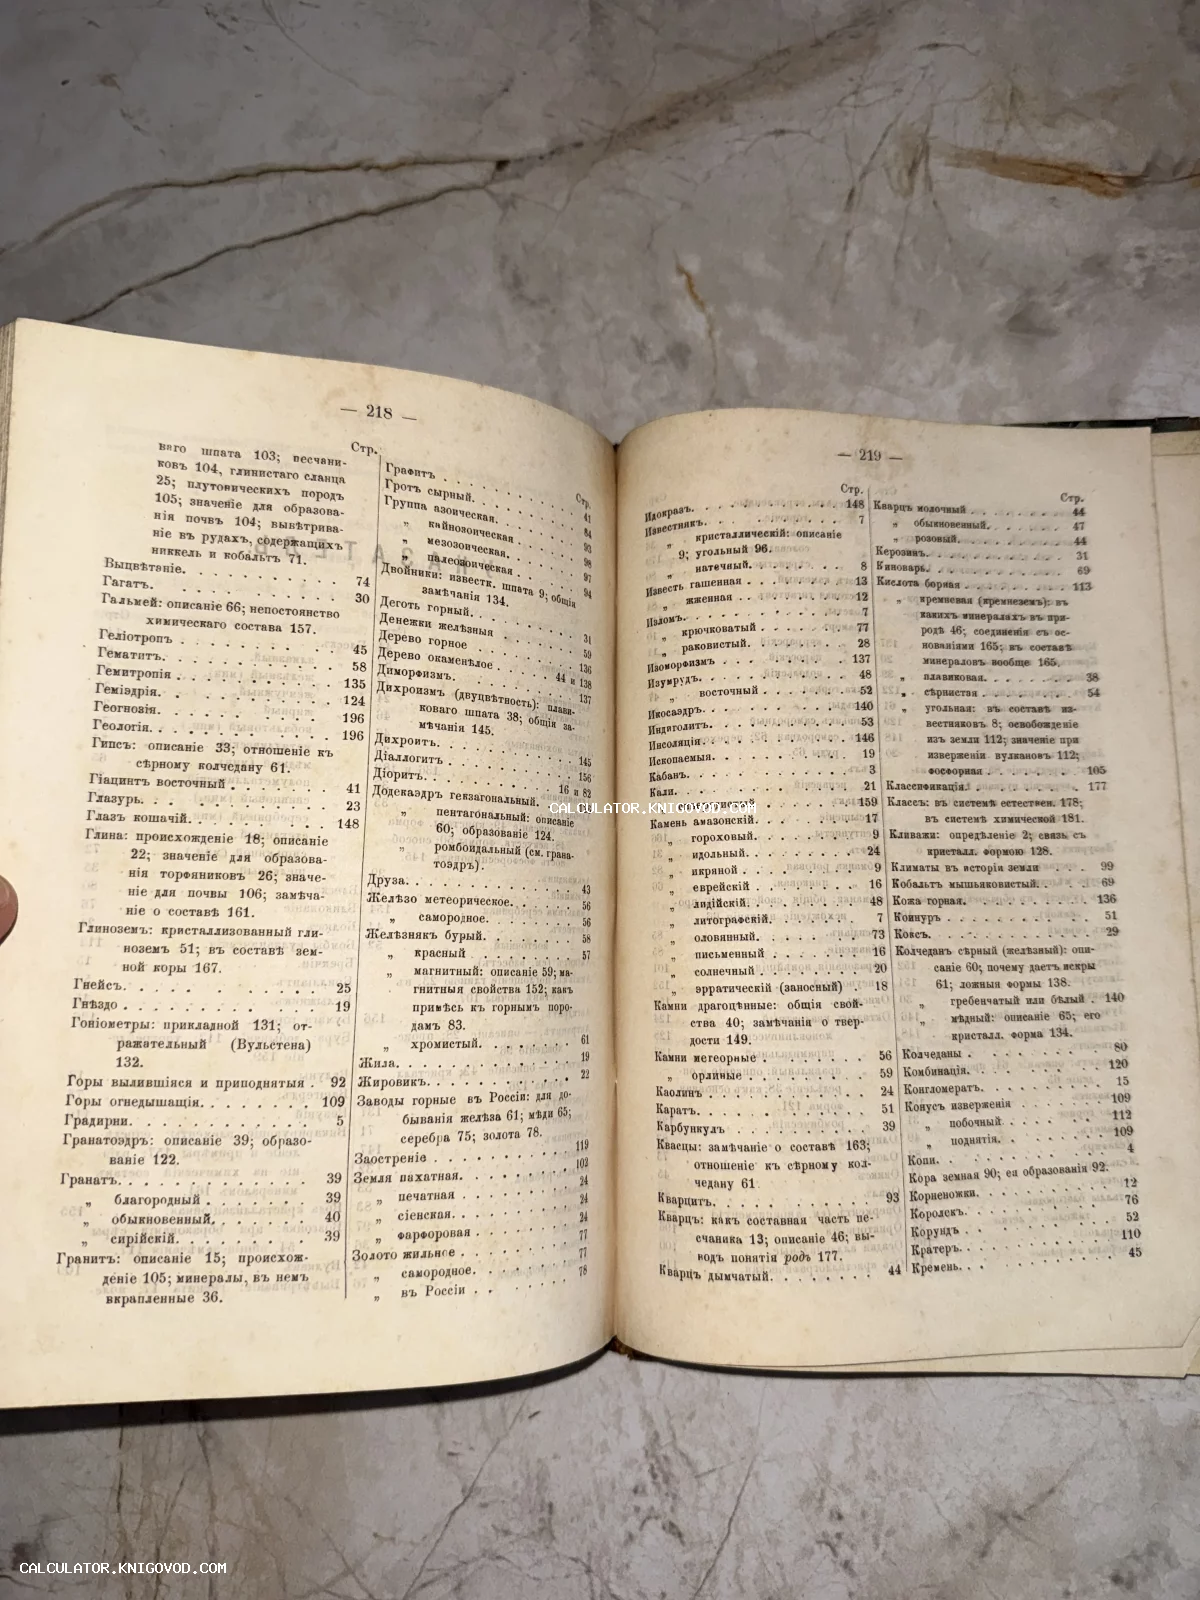 — 218 —
Стр.
ваго шпата 103; песчани-
ковъ 104, глинистаго сланца
25; плутоническихъ породъ
105; значеніе для образова-
нія почвъ 104; вывѣтрива-
ніе въ рудахъ, содержащихъ
никкель и кобальтъ 71.
Выцвѣтаніе. 74
Гагатъ. 30
Гальмей: описаніе 66; непостоянство
химическаго состава 157.
Геліотропъ 45
Гематитъ. 58
Гемитропія 135
Геміэдрія. 124
Геогнозія. 196
Геологія. 196
Гипсъ: описаніе 33; отношеніе къ
сѣрному колчедану 61.
Гіацинтъ восточный 41
Глазурь. 23
Глазъ кошачій. 148
Глина: происхожденіе 18; описаніе
22; значеніе для образова-
нія торфяниковъ 26; значе-
ніе для почвы 106; замѣча-
ніе о составѣ 161.
Глиноземъ: кристаллизованный гли-
ноземъ 51; въ составѣ зем-
ной коры 167.
Гнейсъ. 25
Гнѣздо 19
Гоніометры: прикладной 131; от-
ражательный (Вульстена)
132.
Горы вылившіяся и приподнятыя . 92
Горы огнедышащія. 109
Градирни. 5
Гранатоэдръ: описаніе 39; образо-
ваніе 122.
Гранатъ. 39
„ благородный 39
„ обыкновенный. 40
„ сирійскій. 39
Гранитъ: описаніе 15; происхож-
деніе 105; минералы, въ немъ
вкрапленные 36.
Стр.
Графитъ 41
Гротъ сырный. 84
Группа азоическая. 93
„ кайнозоическая 98
„ мезозоическая. 97
„ палеозоическая 94
Двойники: известк. шпата 9; общія
замѣчанія 134.
Деготь горный. 31
Денежки желѣзныя 59
Дерево горное 136
Дерево окаменѣлое 44 и 138
Диморфизмъ. 137
Дихроизмъ (двуцвѣтность): плави-
коваго шпата 38; общія за-
мѣчанія 145.
Дихроитъ. 145
Діаллогитъ 156
Діоритъ. 16 и 82
Додекаэдръ гекзагональный.
„ пентагональный: описаніе
60; образованіе 124.
„ ромбоидальный (см. грана-
тоэдръ).
Друза. 43
Желѣзо метеорическое. 56
„ самородное. 56
Желѣзнякъ бурый. 58
„ красный 57
„ магнитный: описаніе 59; ма-
гнитныя свойства 152; какъ
примѣсь къ горнымъ поро-
дамъ 83.
„ хромистый. 61
Жила. 19
Жировикъ. 22
Заводы горные въ Россіи: для до-
быванія желѣза 61; мѣди 65;
серебра 75; золота 78.
Заостреніе 119
Земля пахатная. 102
„ печатная 24
„ сіенская. 24
„ фарфоровая 24
Золото жильное 77
„ самородное. 77
„ въ Россіи 78
— 219 —
Стр.
Идокразъ. 148
Известнякъ. 7
„ кристаллическій: описаніе
9; угольный 96.
„ натечный. 8
Известь гашенная 13
„ жженная 12
Изломъ. 7
„ крючковатый 77
„ раковистый. 28
Изоморфизмъ 137
Изумрудъ. 48
„ восточный 52
Икосаэдръ. 140
Индиголитъ. 53
Инсоляція. 146
Ископаемыя. 19
Кабанъ. 3
Кали. 21
159
Камень амазонскій. 17
„ гороховый. 9
„ идольный. 24
„ икряной 9
„ еврейскій 16
„ лидійскій. 48
„ литографскій. 7
„ оловянный. 73
„ письменный 16
„ солнечный 20
„ эрратическій (заносный) . 18
Камни драгоцѣнные: общія свой-
ства 40; замѣчанія о твер-
дости 149.
Камни метеорные 56
„ орлиные 59
Каолинъ 24
Каратъ. 51
Карбункулъ 39
Квасцы: замѣчаніе о составѣ 163;
отношеніе къ сѣрному кол-
чедану 61
Кварцитъ. 93
Кварцъ: какъ составная часть пе-
счаника 13; описаніе 46; вы-
водъ понятія родъ 177.
Кварцъ дымчатый. 44
Стр.
Кварцъ молочный 44
„ обыкновенный. 47
„ розовый. 44
Керозинъ. 31
Киноварь. 69
Кислота борная 113
„ кремневая (кремнеземъ): въ
какихъ минералахъ въ при-
родѣ 46; соединенія съ ос-
нованіями 165; въ составѣ
минераловъ вообще 165.
„ плавиковая. 38
„ сѣрнистая 54
„ угольная: въ составѣ из-
вестняковъ 8; освобожденіе
изъ земли 112; значеніе при
изверженіи вулкановъ 112;
фосфорная 105
Классификація. 177
Классъ: въ системѣ естествен. 178;
въ системѣ химической 181.
Кливажи: опредѣленіе 2; связь съ
кристалл. формою 128.
Климаты въ исторіи земли 99
Кобальтъ мышьяковистый. 69
Кожа горная. 136
Коинуръ 51
Коксъ. 29
Колчеданъ сѣрный (желѣзный): опи-
саніе 60; почему даетъ искры
61; ложныя формы 138.
„ гребенчатый или бѣлый . 140
„ мѣдный: описаніе 65; его
кристалл. форма 134.
Колчеданы 80
Комбинація. 120
Конгломератъ. 15
Конусъ изверженія 109
„ побочный 112
„ поднятія. 109
Копи. 4
Кора земная 90; ея образованія 92.
Корненожки. 12
Королекъ. 76
Корундъ 52
Кратеръ. 110
Кремень. 45
CALCULATOR.KNIGOVOD.COM
CALCULATOR.KNIGOVOD.COM